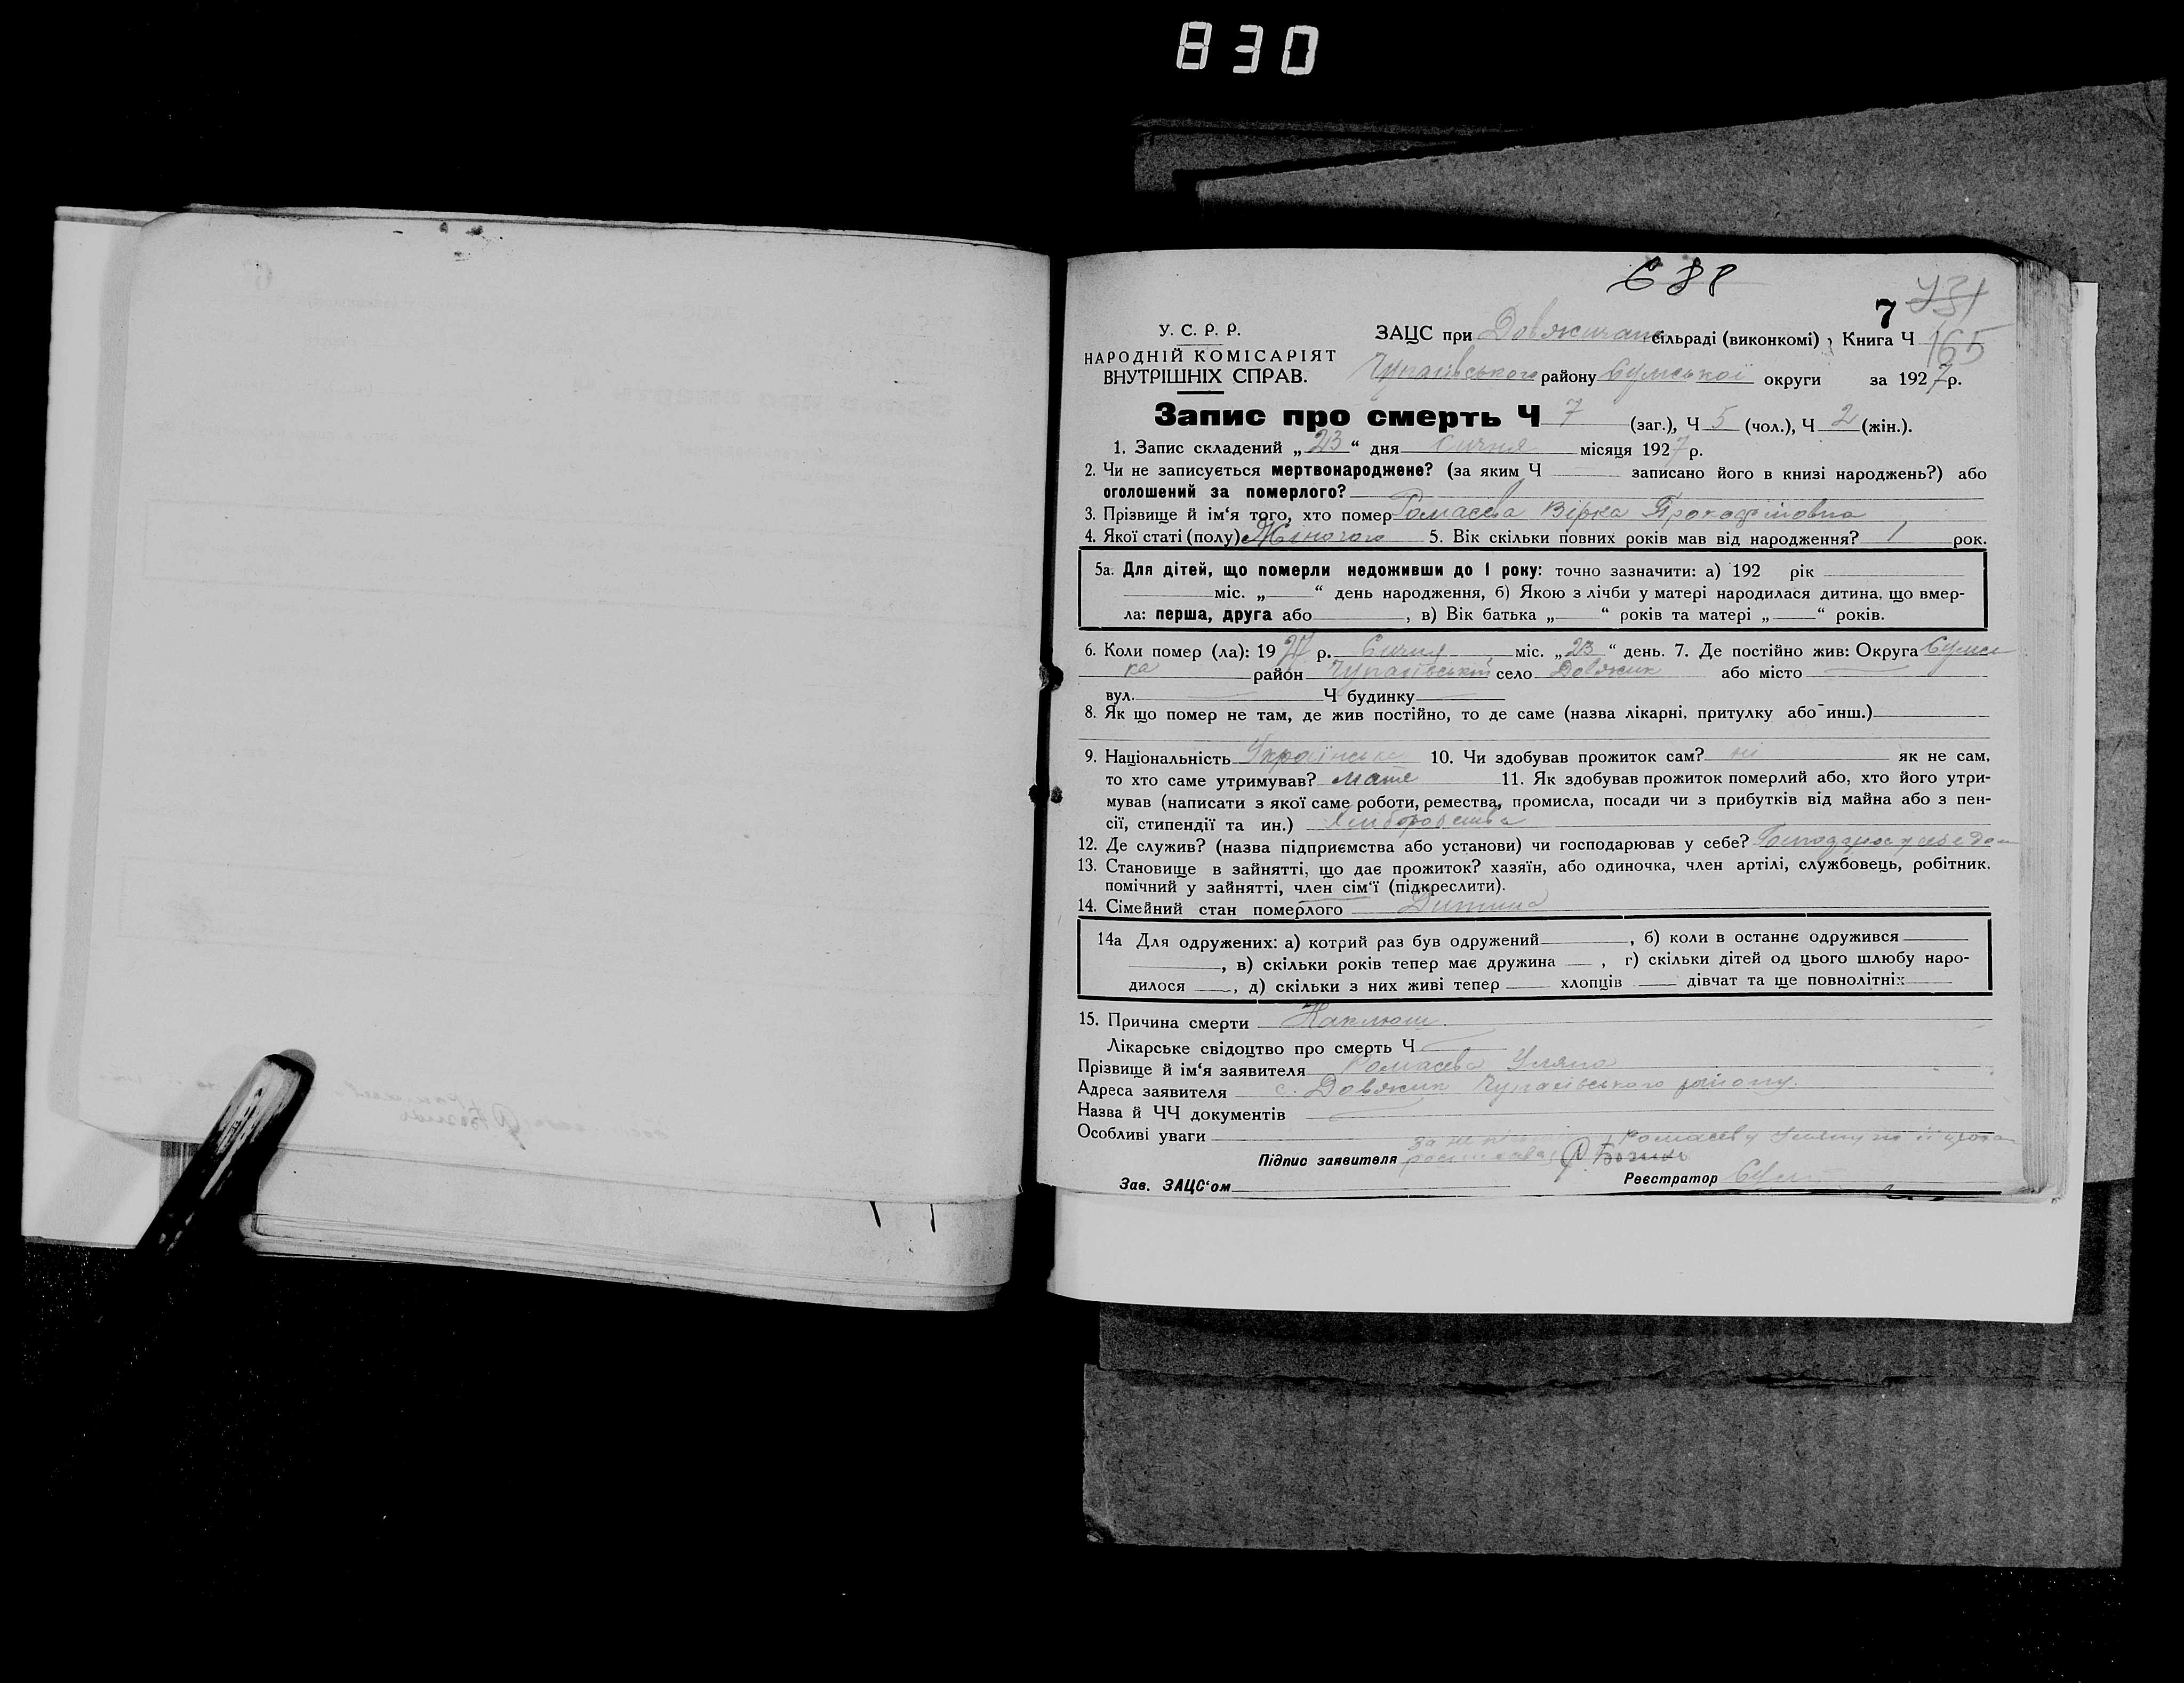 830
688
7 731
У. С. Р. Р.
ЗАЦС при Довжичан сільраді (виконкомі) Книга Ч 165
НАРОДНІЙ КОМІСАРІЯТ
ВНУТРІШНІХ СПРАВ.
Чупахівського району Сумської округи за 1927 р.
Запис про смерть Ч 7 (заг.), Ч 5 (чол.), Ч 2 (жін.).
1. Запис складений „23“ дня Січня місяця 1927 р.
2. Чи не записується мертвонароджене? (за яким Ч записано його в книзі народжень?) або
оголошений за померлого?
3. Прізвище й ім‘я того, хто помер Ромаєва Вірка Прокофіїовна
4. Якої статі (полу) Жіночого 5. Вік скільки повних років мав від народження? 1 рок.
5а. Для дітей, що померли недоживши до 1 року: точно зазначити: а) 192 рік
міс. „ “ день народження, б) Якою з лічби у матері народилася дитина, що вмер-
ла: перша, друга або , в) Вік батька „ “ років та матері „ “ років.
6. Коли помер (ла): 1927 р. Січня міс. „23“ день. 7. Де постійно жив: Округа Сумсь
ка район Чупахівський село Довжик або місто
вул. Ч будинку
8. Як що помер не там, де жив постійно, то де саме (назва лікарні, притулку або инш.)
9. Національність Українська 10. Чи здобував прожиток сам? ні як не сам,
то хто саме утримував? мати 11. Як здобував прожиток померлий або, хто його утри-
мував (написати з якої саме роботи, ремества, промисла, посади чи з прибутків від майна або з пен-
сії, стипендії та ин.) Хліборобства
12. Де служив? (назва підприємства або установи) чи господарював у себе? Господарює у себе дома
13. Становище в зайнятті, що дає прожиток? хазяїн, або одиночка, член артілі, службовець, робітник,
помічний у зайнятті, член сім‘ї (підкреслити).
14. Сімейний стан померлого Дитина
14а Для одружених: а) котрий раз був одружений , б) коли в останнє одружився
, в) скільки років тепер має дружина , г) скільки дітей од цього шлюбу наро-
дилося , д) скільки з них живі тепер хлопців дівчат та ще повнолітніх
15. Причина смерти Каклюш
Лікарське свідоцтво про смерть Ч
Прізвище й ім‘я заявителя Ромаєва Уляна
Адреса заявителя с. Довжик Чупахівського району.
Назва й ЧЧ документів
Особливі уваги
Підпис заявителя за Ромаєву Уляну
Зав. ЗАЦС‘ом Реєстратор